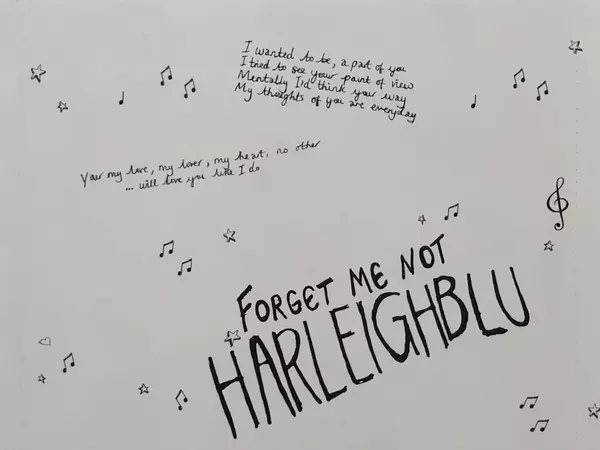 I wanted to be, a part of you
I tried to see your point of view
Mentally I'd think your way
My thoughts of you are everyday
Your my love, my lover, my heart, no other
... will love you like I do
FORGET ME NOT
HARLEIGHBLU